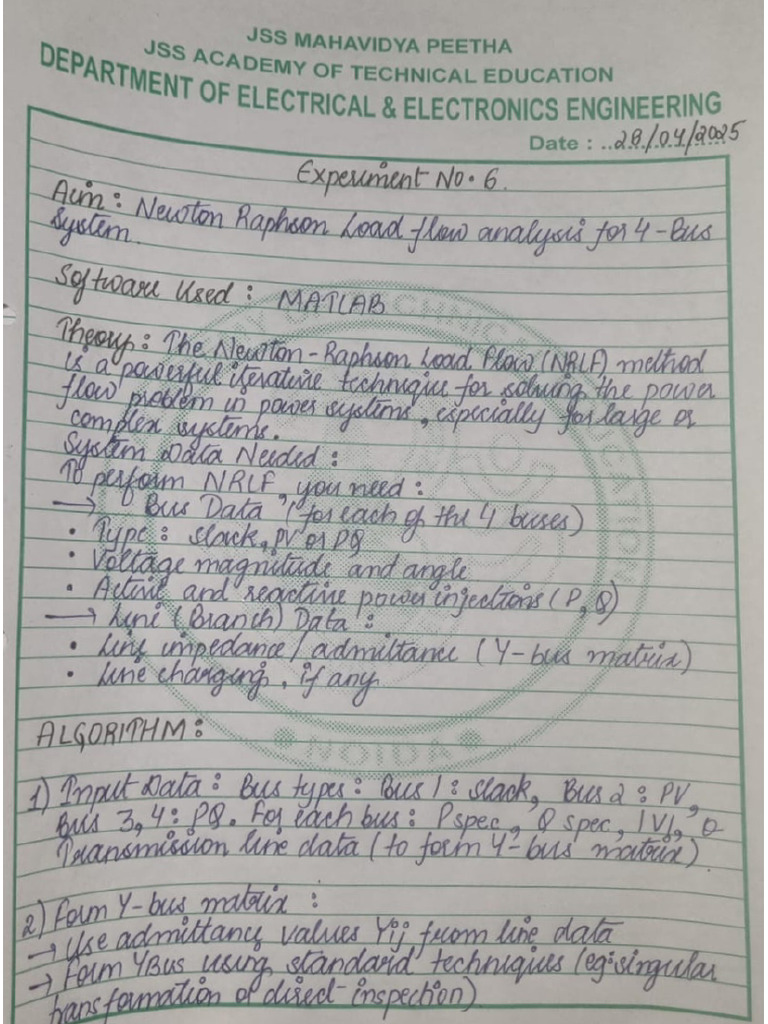 JSS MAHAVIDYA PEETHA
JSS ACADEMY OF TECHNICAL EDUCATION
DEPARTMENT OF ELECTRICAL & ELECTRONICS ENGINEERING
Date : ..28/04/2025
Experiment No. 6.
Aim : Newton Raphson Load flow analysis for 4-Bus
System.
Software Used : MATLAB
Theory : The Newton-Raphson Load Flow (NRLF) method
is a powerful iterative technique for solving the power
flow problem in power systems, especially for large or
complex systems.
System Data Needed :
To perform NRLF, you need :
→ Bus Data (for each of the 4 buses)
• Type : Slack, PV or PQ
• Voltage magnitude and angle
• Active and reactive power injections (P, Q)
→ Line (Branch) Data :
• Line impedance/admittance (Y-bus matrix)
• Line charging, if any
NOIDA
ALGORITHM :
1) Input Data : Bus types : Bus 1 : Slack, Bus 2 : PV,
Bus 3, 4 : PQ. For each bus : Pspec, Q spec, |V|, θ
Transmission line data (to form Y-bus matrix)
2) Form Y-bus matrix :
→ Use admittance values Yij from line data
→ Form YBus using standard techniques (eg: singular
transformation or direct-inspection).